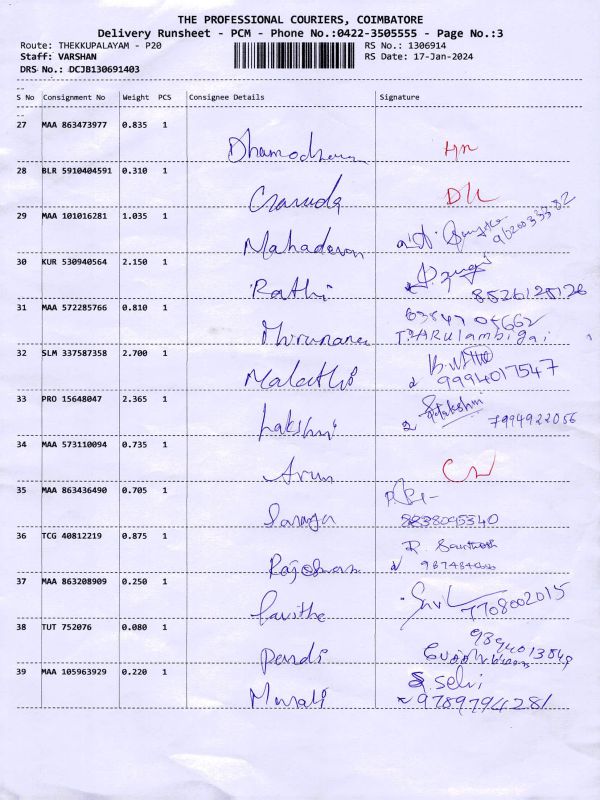 THE PROFESSIONAL COURIERS, COIMBATORE
Delivery Runsheet - PCM - Phone No.:0422-3505555 - Page No.:3
Route: THEKKUPALAYAM - P20 RS No.: 1306914
Staff: VARSHAN RS Date: 17-Jan-2024
DRS No.: DCJB130691403
S No Consignment No Weight PCS Consignee Details Signature
27 MAA 863473977 0.835 1
28 BLR 5910404591 0.310 1
Garuda
29 MAA 101016281 1.035 1
Mahadevan
30 KUR 530940564 2.150 1
Rathi 8526128126
31 MAA 572285766 0.810 1
T.ARulambigai
32 SLM 337587358 2.700 1
Malathi 9994017547
33 PRO 15648047 2.365 1
Lakshmi 7994922056
34 MAA 573110094 0.735 1
Arun
35 MAA 863436490 0.705 1
36 TCG 40812219 0.875 1
R. Santhosh
37 MAA 863208909 0.250 1
7708002015
38 TUT 752076 0.080 1
Pandi
39 MAA 105963929 0.220 1
S.Selvi
Murali 9789794281